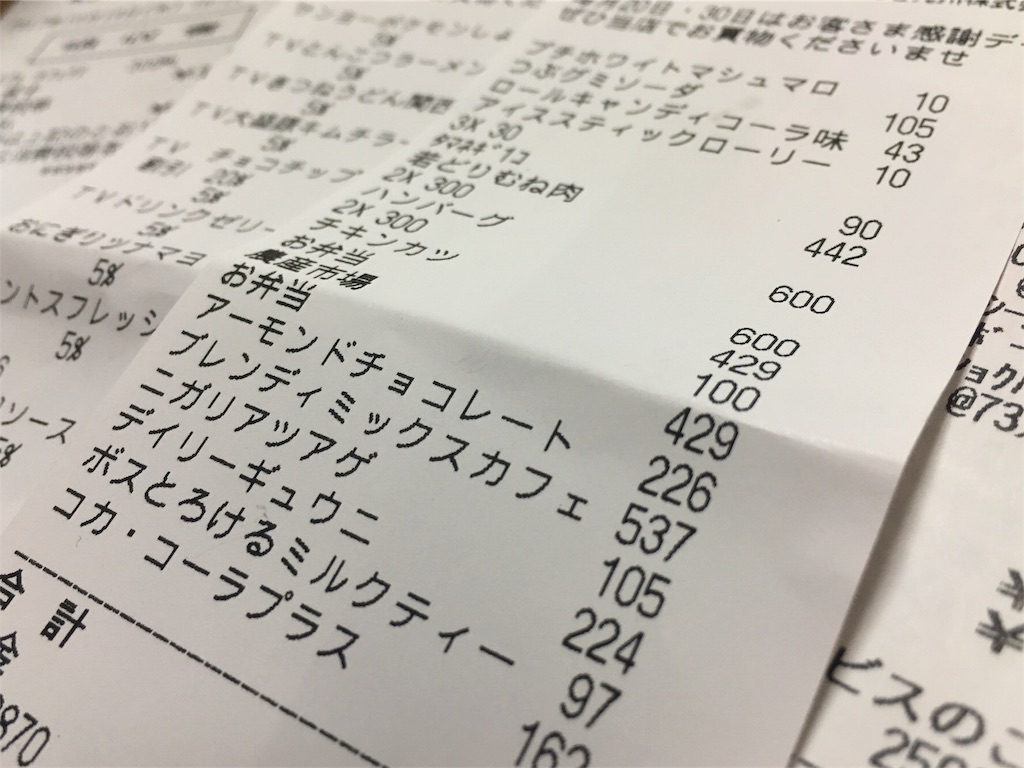 20日・30日はお客さま感謝デ
ぜひ当店でお買物くださいませ
プチホワイトマシュマロ 10
つぶグミソーダ 105
ロールキャンディコーラ味 43
アイススティックローリー 10
3X 30
ﾀﾏﾈｷﾞ1コ 90
若どりむね肉 442
2X 300
ハンバーグ 600
2X 300
チキンカツ 600
お弁当 429
農産市場 100
お弁当 429
アーモンドチョコレート 226
ブレンディミックスカフェ 537
ニガリアツアゲ 105
デイリーギュウニ 224
ボスとろけるミルクティー 97
コカ・コーラプラス 162
合計
870
TVとんこつラーメン
5%
TVきつねうどん関西
5%
TV大盛豚キムチラー
5%
TV チョコチップ
割引 20%
TVドリンクゼリー
5%
おにぎりツナマヨ
5%
ントスフレッシ
5%
ソース
5%
@73
ビスのご